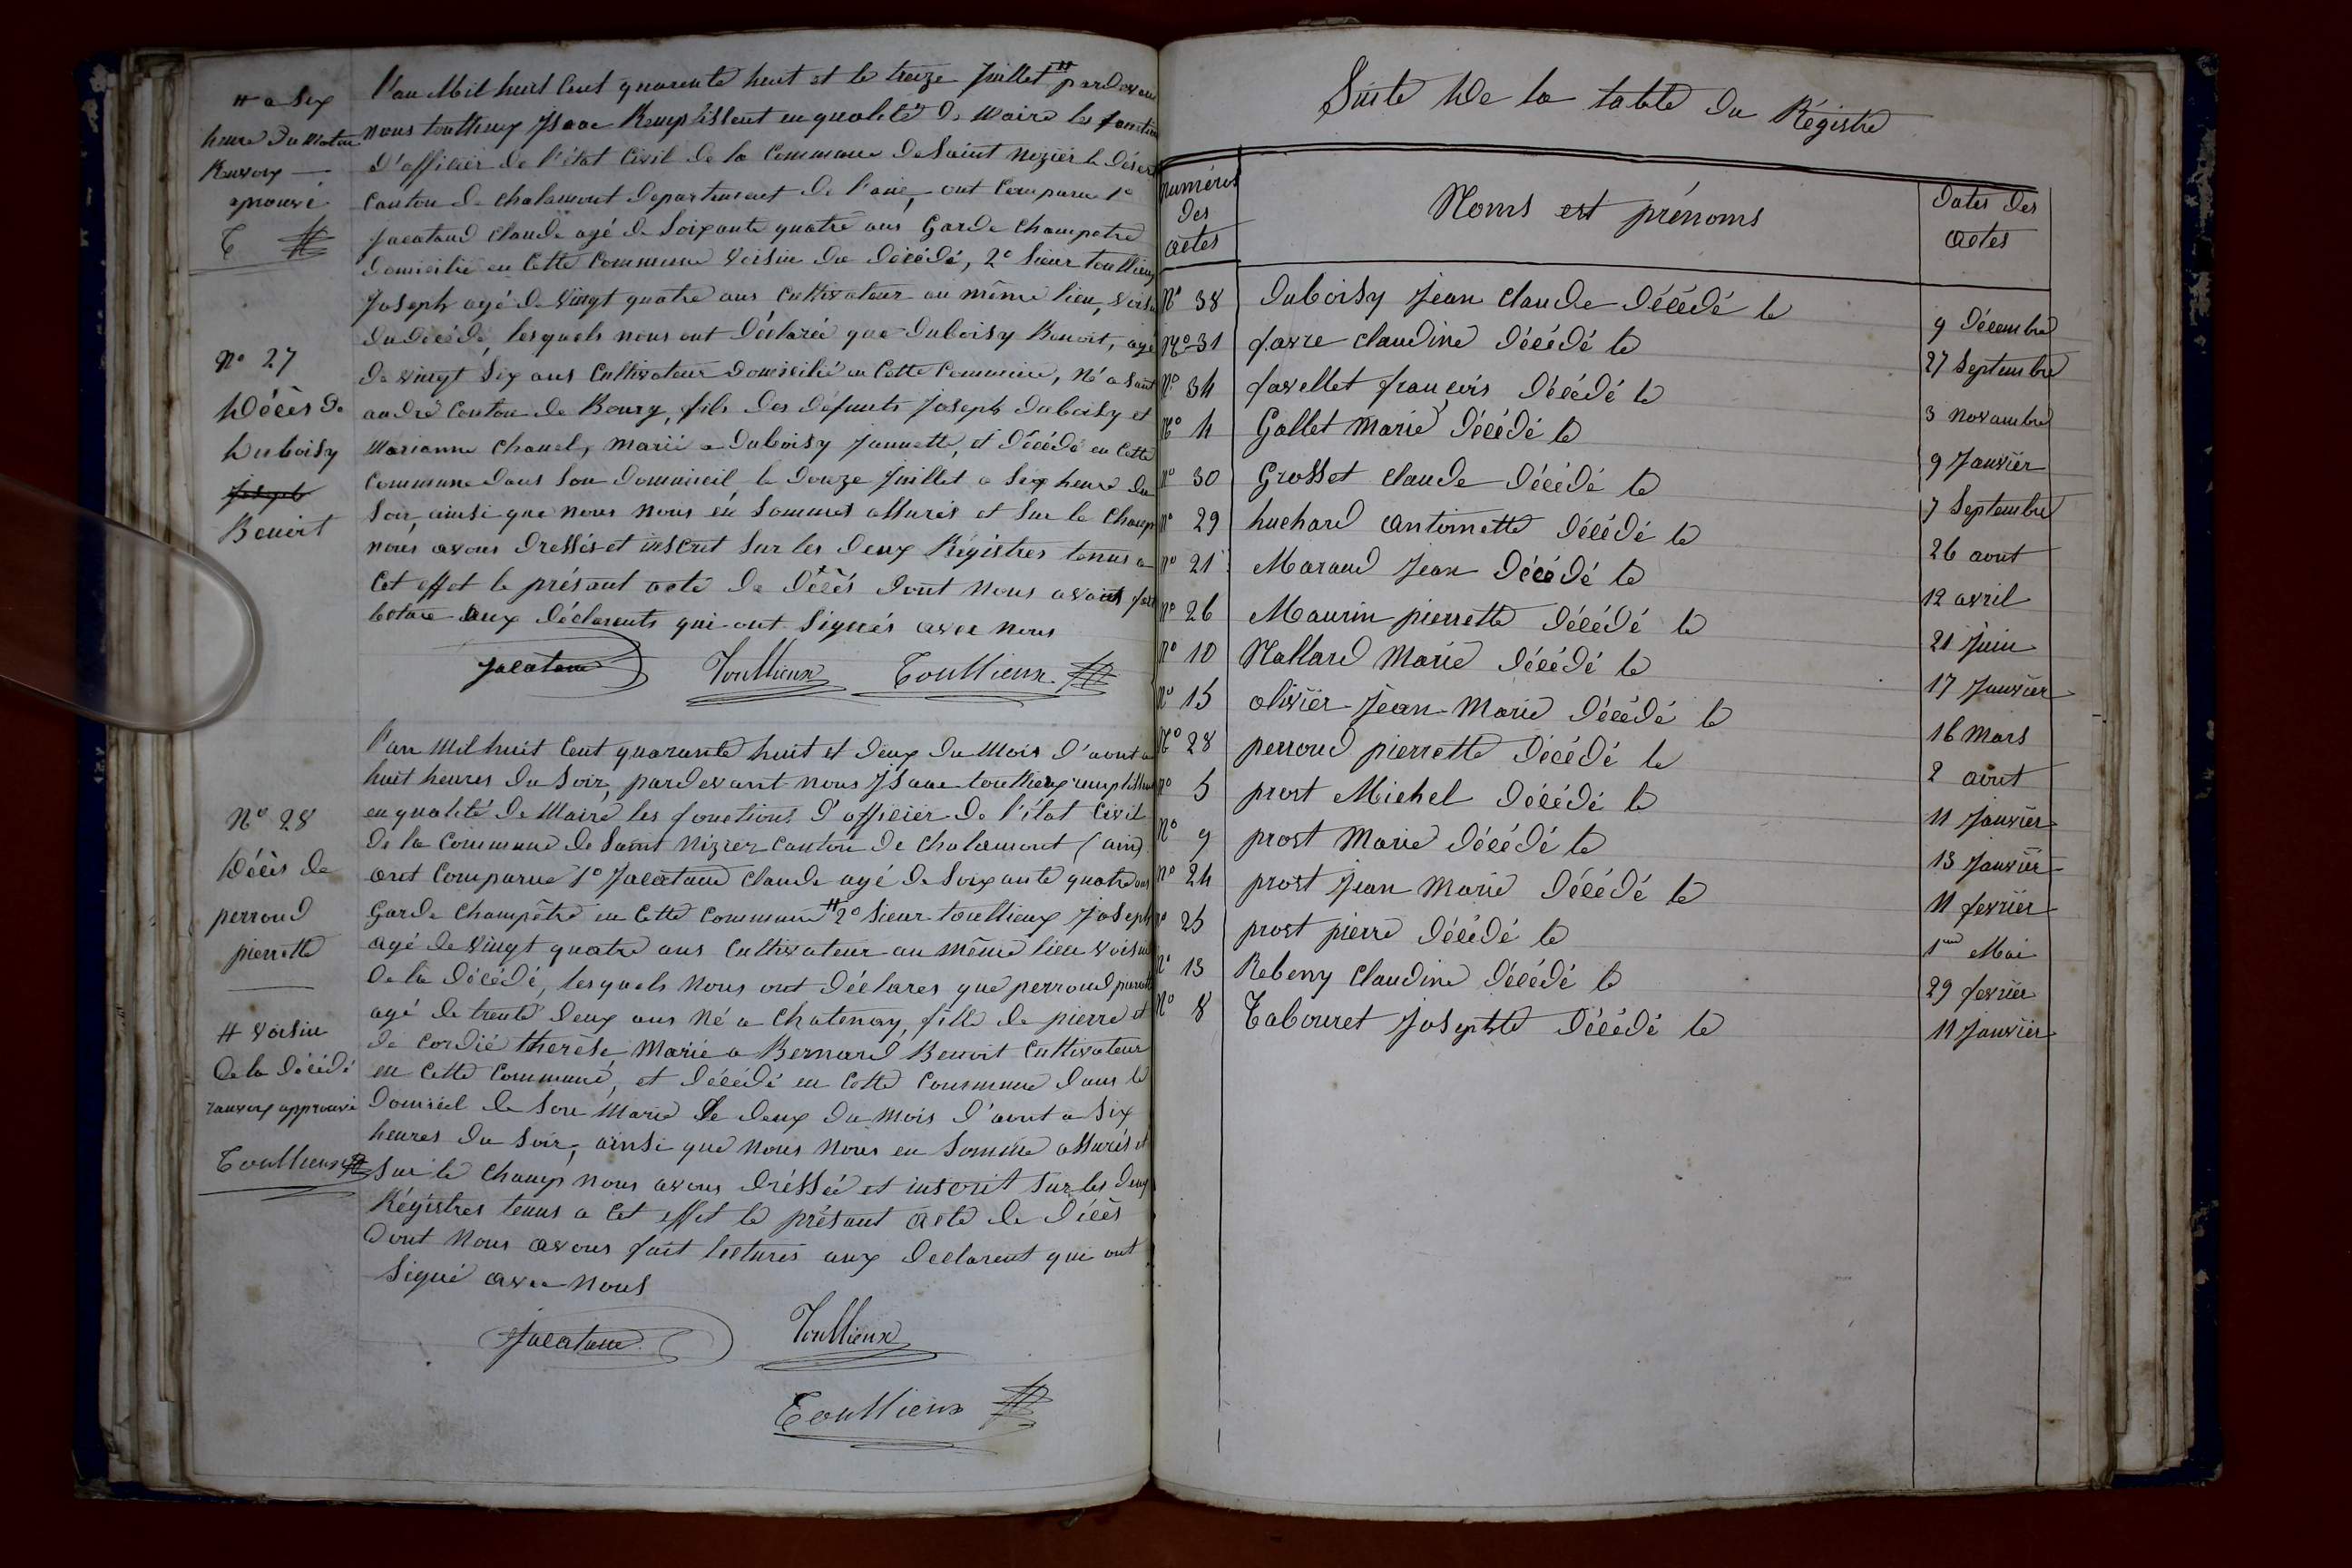 # a Six
heure du Matin
Renvoy —
aprouvé
T
l'an Mil huit Cent quarente huit et le treize Juillet # pardevant
nous toullieux Isaac Remplissent en qualité de Maire les fonction
d'officier de l'état Civil de la Commune de Saint nizier le désert
Canton de chalamont departement de l'ain, ont Comparu 1°
Jacataud claude agé de Soixante quatre ans Garde champetre
domicilié en Cette Commune Voisin du décédé, 2° Sieur toullieux
Joseph agé de Vingt quatre ans Cultivateur au même lieu, voisin
du décédé, lesquels nous ont déclarée que duboisy Benoit, agé
de vingt Six ans Cultivateur domicilié en Cette Commune, Né a Saint
andré Conton de Bourg, fils des défunts Joseph duboisy et
Marianne Chanel, Marié a Duboisy Jannette, et décédé en Cette
Commune dans Son domicil, le douze Juillet a Six heure du
Soir, ainsi que nous nous en Sommes assurés et Sur le Champ
nous avons dressés et inscrit Sur les deux Régistres tenus a
Cet effet le présant acte de décès dont nous avons fait
lecture aux déclarents qui ont Signés avec nous
Jacataud Toullieux Toullieux
N° 27
Décès de
Duboisy
Joseph
Benoit
l'an Mil huit Cent quarante huit et deux du Mois d'aout a
huit heures du Soir, pardevant nous Isaac toullieux remplissant
en qualité de Maire les fonctions d'officier de l'état Civil
de la Commune de Saint Nizier Canton de Chalamont (ain)
ont Comparue 1° Jacataud Claude agé de Soixante quatre ans
Garde Champêtre en Cette Commune # 2° Sieur toullieux Joseph
agé de Vingt quatre ans Cultivateur au même lieu voisin
de la décédé, lesquels nous ont déclares que perroud pierrette
agé de trente deux ans Né a Chatenay, fille de pierre et
de Cordié thérèse, Marié a Bernard Benoit Cultivateur
en Cette Commune, et décédé en Cette Commune dans le
domicil de Son Marie Le deux du mois d'aout a Six
heures du Soir, ainsi que nous nous en Somme assurés et
Sur le Champ nous avons dréssée et inscrit Sur les deux
Régistres tenus a Cet effet le présant acte de décès
dont nous avons fait lectures aux declarent qui ont
Signé avec nous
Jacataud Toullieux
Toullieux
N° 28
Décès de
perroud
pierrette
# voisin
de la décédé
ranvoy approuvé
Toullieux
Suite De la table du Régistre
numéros des actes Noms est prénoms dates des actes
N° 38 duboisy Jean Claude décédé le 9 décembre
N° 31 favre claudine décédé le 27 Septembre
N° 34 favellet françois décédé le 3 novambre
N° 4 Gallet Marie décédé le 9 Janvier
N° 30 Grosset claude décédé le 7 Septembre
N° 29 huchard antoinette décédé le 26 aout
N° 21 Maraud Jean décédé le 12 avril
N° 26 Maurin pierrette décédé le 21 Juin
N° 10 Nallard Marie décédé le 17 Janvier
N° 15 olivier Jean Marie décédé le 16 Mars
N° 28 perroud pierrette décédé le 2 aout
N° 5 prost Michel décédé le 11 Janvier
N° 9 prost Marie décédé le 13 Janvier
N° 24 prost Jean Marie décédé le 11 fevrier
N° 25 prost pierre décédé le 1er Mai
N° 13 Rebeny Claudine décédé le 29 fevrier
N° 8 Tabouret Josephte décédé le 11 Janvier